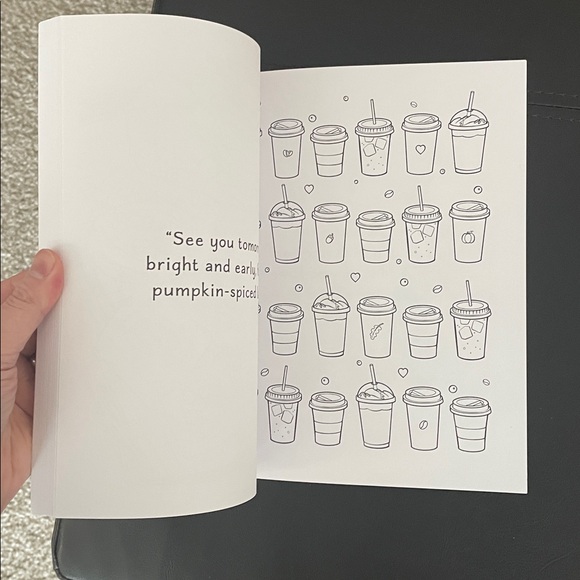 “See you
bright and early,
pumpkin-spiced